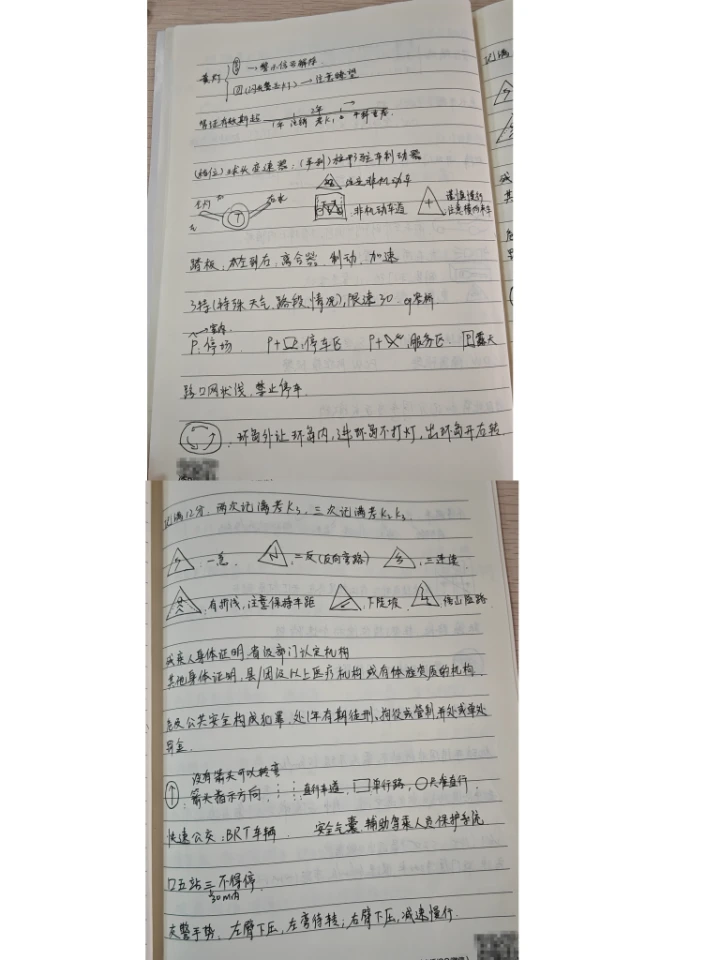 黄灯 ① → 警示信号解除.
②(闪烁警示灯) → 注意瞭望
2年
1年 注销 考K1
(档位)球状变速器; (手刹)柱形驻车制动器
注意非机动车
非机动车道
谨慎慢行
注意横向来车
雨水
踏板, 从左到右: 离合器 制动 加速
3特(特殊天气、路段、情况), 限速30.
P: 停车场. P+ : 停车区 P+ : 服务区 回露天
路口网状线, 禁止停车.
环岛外让环岛内, 进环岛不打灯, 出环岛开右转
记满12分. 两次记满考K3, 三次记满考K2K3.
: 一急. , 二反(反向弯路) , 三连续
: 有折线, 注意保持车距 , 下陡坡. 傍山险路.
残疾人身体证明, 省级部门认定机构
其他身体证明, 县/团级以上医疗机构 或有体检资质的机构.
危及公共安全构成犯罪, 处1年有期徒刑、拘役或管制并处或单处
罚金.
没有箭头可以转弯
箭头指示方向, 直行车道, 口单行路, ○只准直行
快速公交: BRT车辆. 安全气囊 辅助驾乘人员保护系统
口五站三不得停.
30m内
交警手势. 左臂下压, 左弯待转; 右臂下压, 减速慢行.